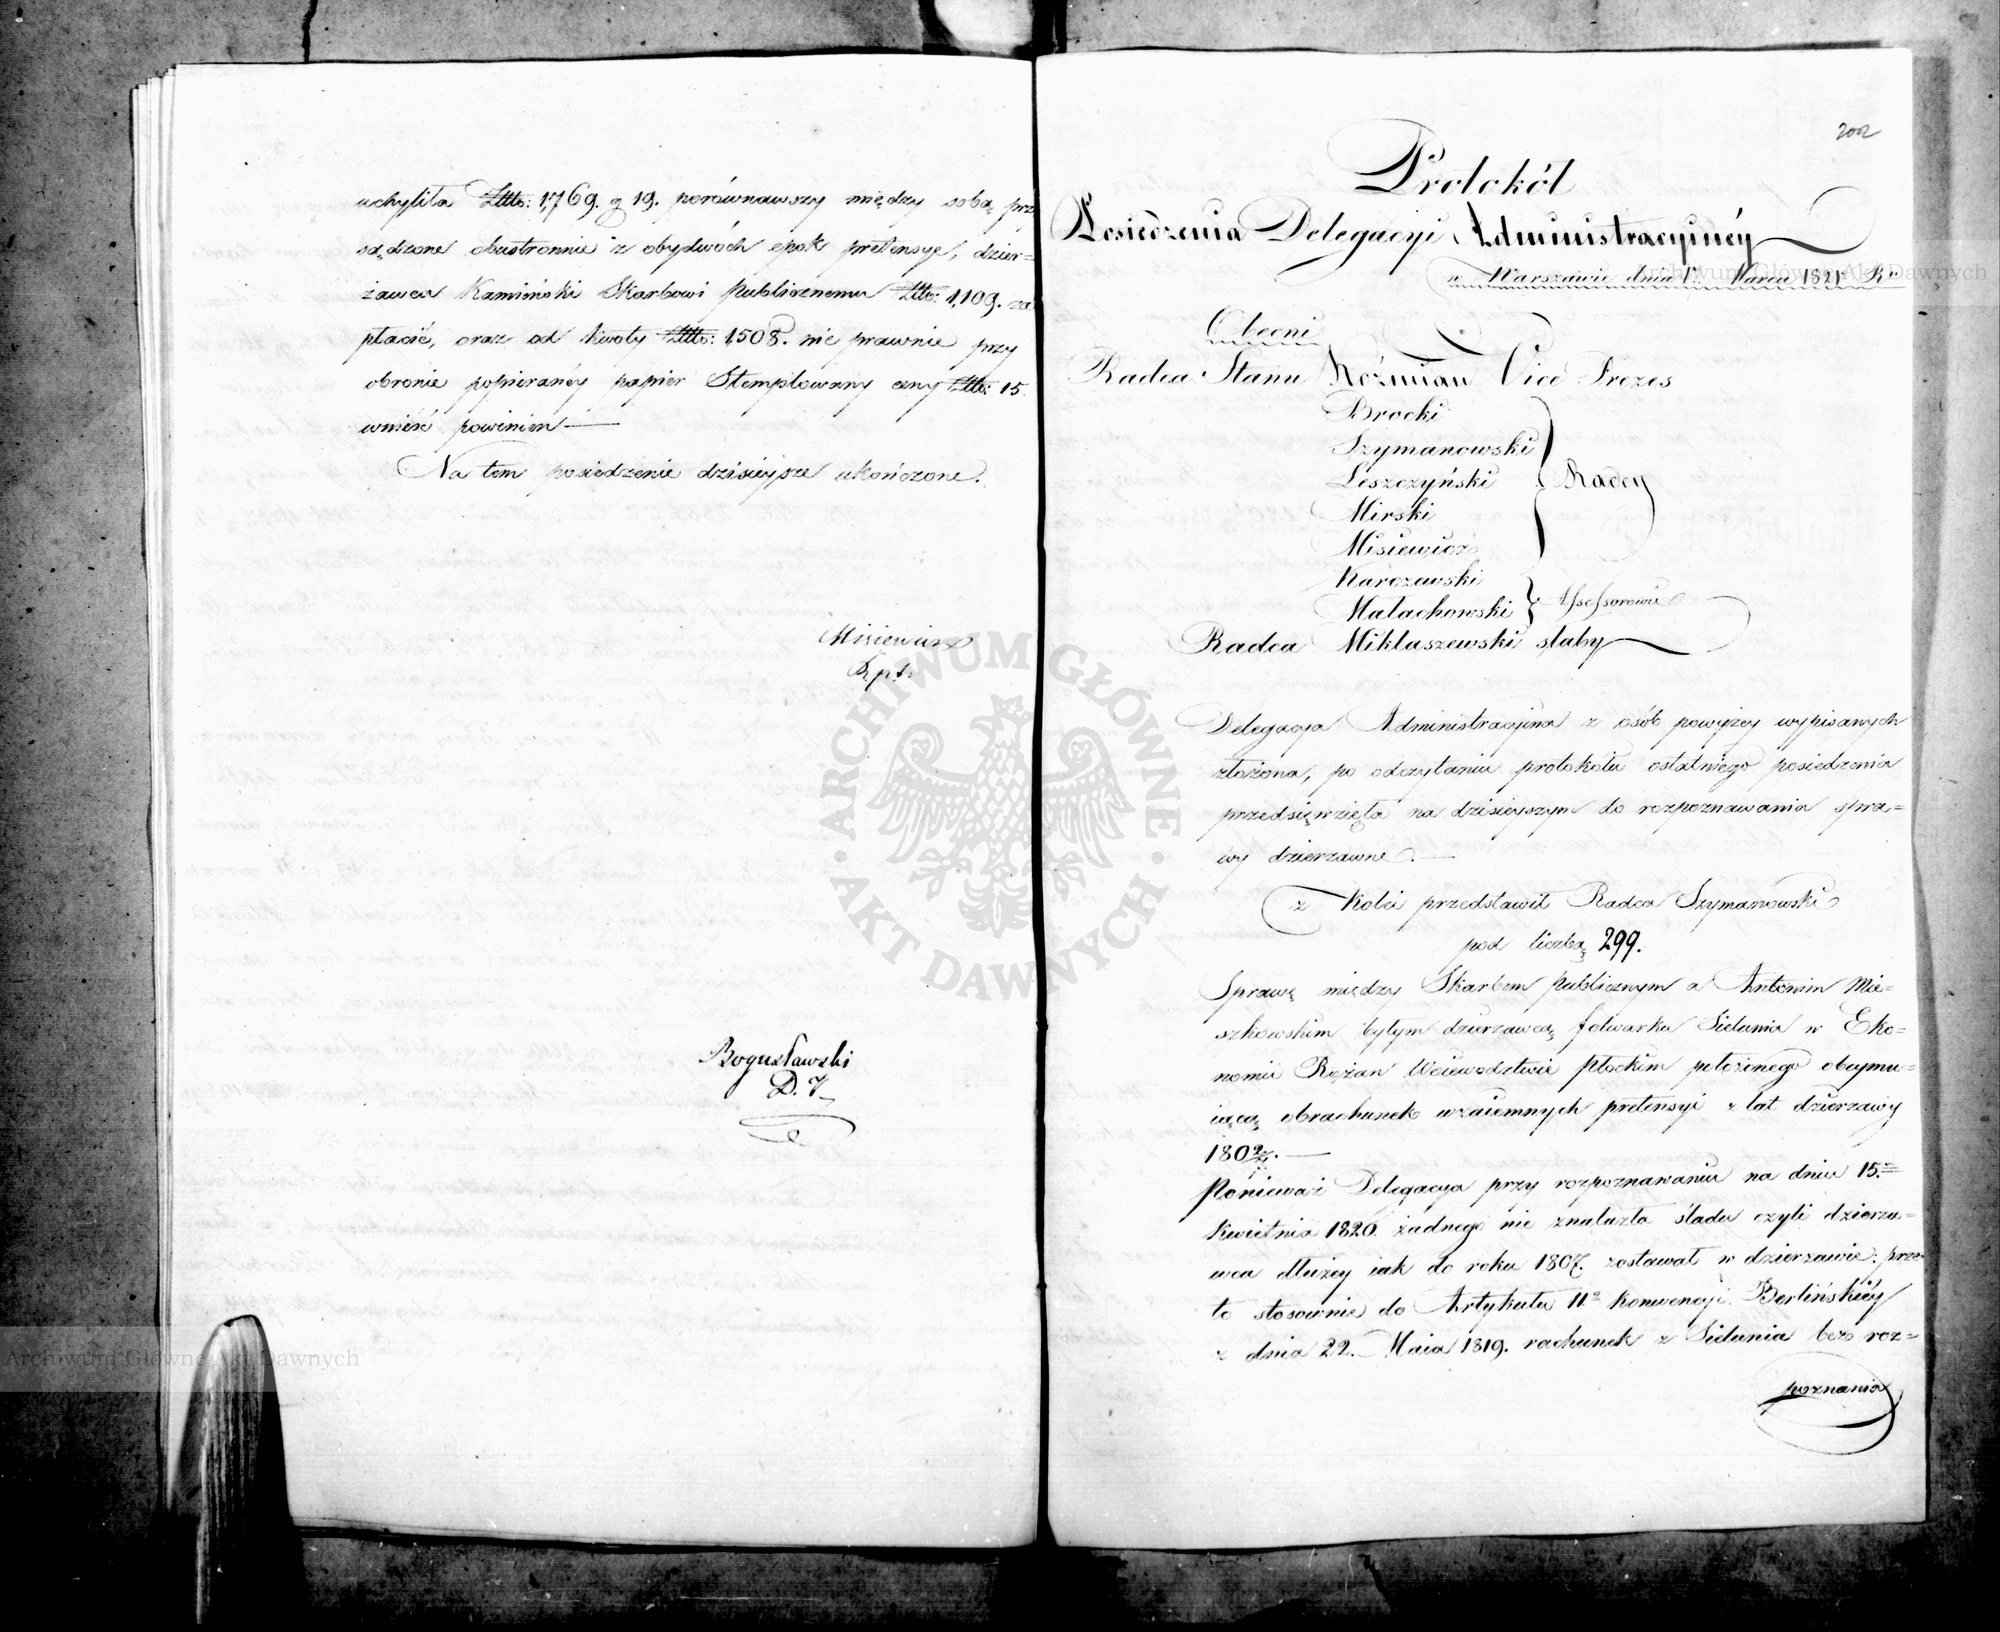 uchyliła Złłło: 1,769. g 19. porównawszy między sobą prz
sądzone obustronnie z obydwóch epok pretensye, dzier=
żawca Kamiński Skarbowi publicznemu Złłło: 1,109. za
płacić, oraz od kwoty Złłło: 1508. nie prawnie przy
obronie popieranéy papier Stemplowany ceny Złłło: 15
wnieść powinien —
Na tem posiedzenie dzisieysze ukończone.
Misiewicz
Bogusławski
D. J.
202
Protokół
Posiedzenia Delegacyi Administracyinéy
w Warszawie dnia 1. Marca 1821 Ru
Obecni
Radca Stanu Koźmian Vice Prezes
Brocki
Szymanowski
Leszczyński Radcy
Mirski
Misiewicz
Karczewski
Małachowski Assessorowie
Radca Miklaszewski słaby
Delegacya Administracyina z osób powyżey wypisanych
złożona, po odczytaniu protokółu ostatniego posiedzenia
przedsięwzięła na dzisieyszym do rozpoznawania spra=
wy dzierzawne. —
z Kolei przedstawił Radca Szymanowski
pod liczbą 299.
Sprawę między Skarbem publicznym a Antonim Mie=
szkowskim byłym dzierzawcą folwarku Sielunia w Eko=
nomii Rożan Woiewodztwie Płockim położonego obeymu=
iącą obrachunek wzaiemnych pretensyi z lat dzierzawy
180 —
Ponieważ Delegacya przy rozpoznawaniu na dniu 15.
Kwietnia 1820 żadnego nie znalazła śladu czyli dzierza=
wca dłużey iak do roku 1807. zostawał w dzierzawie: prze
to stosownie do Artykułu 11. Konwencyi Berlińskiéy
z dnia 22. Maia 1819. rachunek z Sielunia bez roz=
poznania
ARCHIWUM GŁÓWNE AKT DAWNYCH
Archiwum Główne Akt Dawnych
Archiwum Główne Akt Dawnych